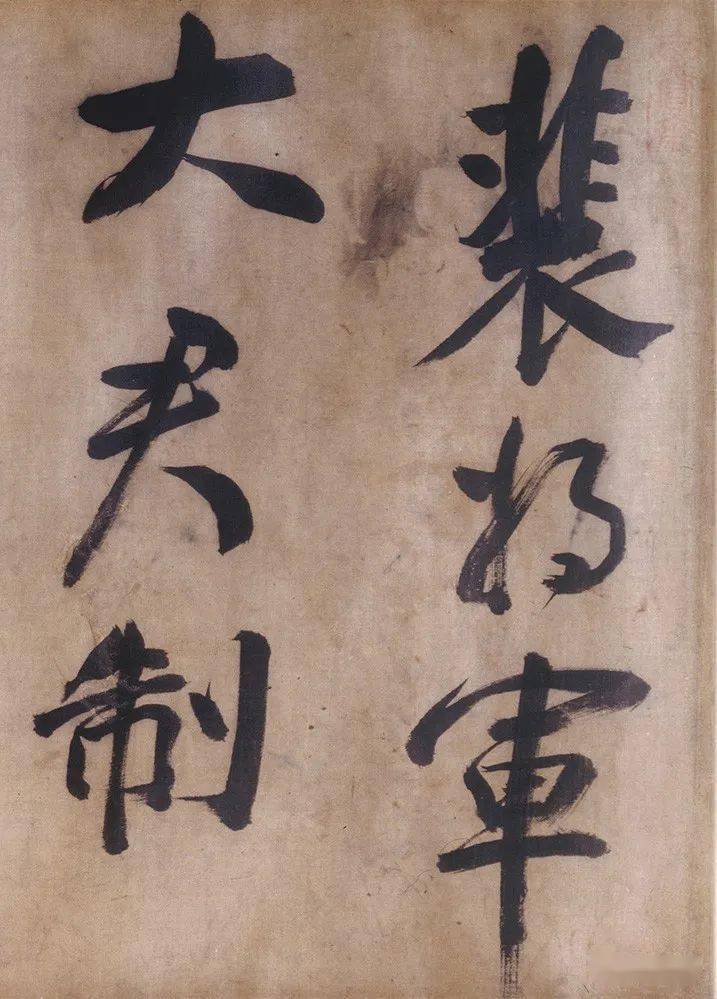 裴將軍
大君制